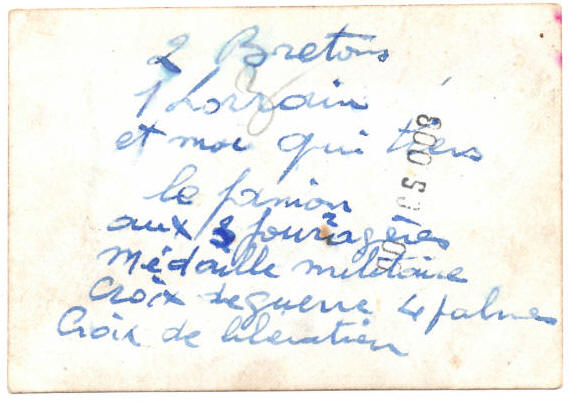 2 Bretons
1 Lorrain
et moi qui tiens
le fanion
aux 3 fourragères
Médaille militaire
Croix de guerre 4 palmes
Croix de libération